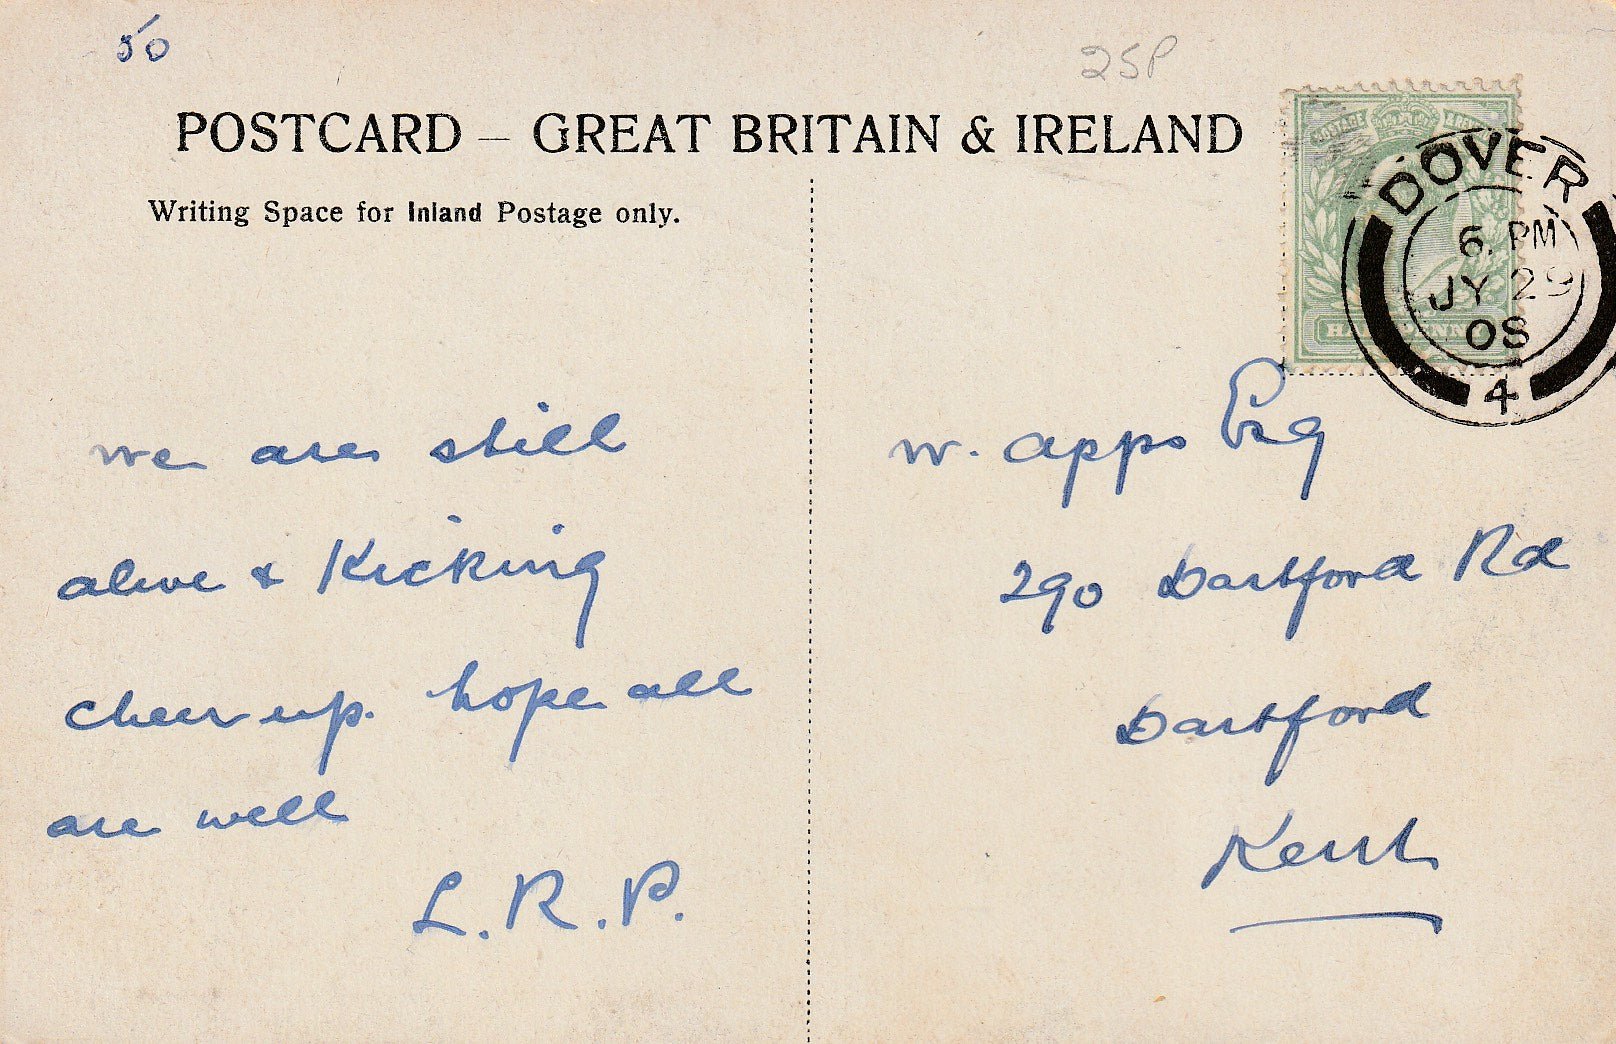 50
25P
POSTCARD – GREAT BRITAIN & IRELAND
Writing Space for Inland Postage only.
POSTAGE
HALFPENNY
DOVER
6. PM
JY 29
08
4
we are still
alive & Kicking
cheer up. hope all
are well
L. R. P.
W. apps Esq
290 Dartford Rd
Dartford
Kent